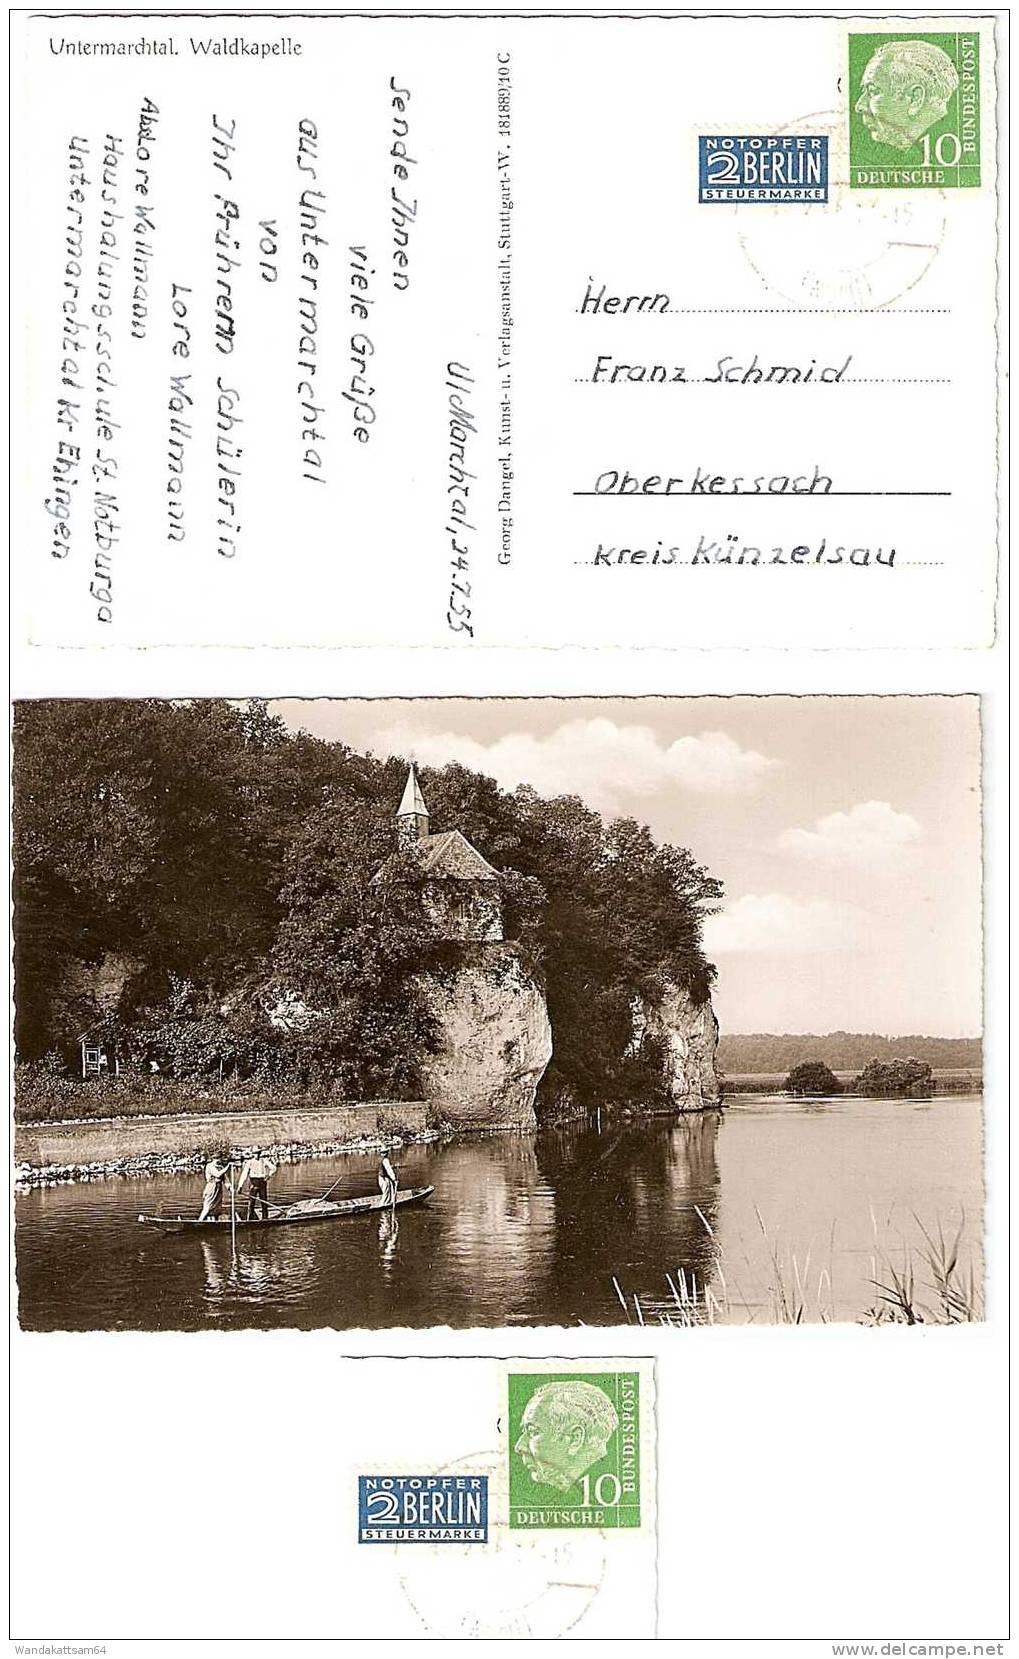 Untermarchtal. Waldkapelle
U/Marchtal, 24.7.55
Sende Ihnen
viele Grüße
aus Untermarchtal
von
Ihr frührern Schülerin
Lore Wallmann
Abs Lore Wallmann
Haushalungsschule St. Notburga
Untermarchtal Kr Ehingen
Georg Dangel, Kunst- u. Verlagsanstalt, Stuttgart-W. 181889/40 C
NOTOPFER
2 BERLIN
STEUERMARKE
10
DEUTSCHE
BUNDESPOST
Herrn
Franz Schmid
Oberkessach
Kreis Künzelsau
NOTOPFER
2 BERLIN
STEUERMARKE
10
DEUTSCHE
BUNDESPOST
Wandakattsam64
www.delcampe.net